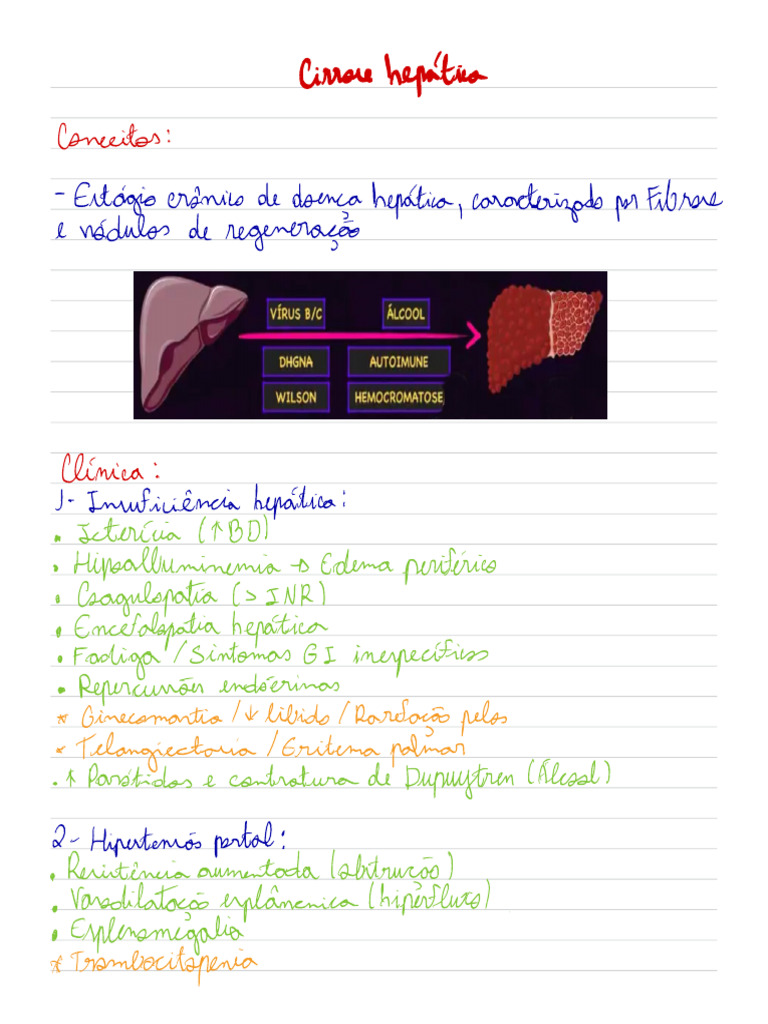 Cirrose hepática
Conceitos:
- Estágio crônico de doença hepática, caracterizado por Fibrose
e nódulos de regeneração
VÍRUS B/C
ÁLCOOL
DHGNA
AUTOIMUNE
WILSON
HEMOCROMATOSE
Clínica:
1- Insuficiência hepática:
• Icterícia (↑BD)
• Hipoalbuminemia → Edema periférico
• Coagulopatia (> INR)
• Encefalopatia hepática
• Fadiga / Sintomas GI inespecíficos
• Repercursões endócrinas
* Ginecomastia / ↓ libido / Rarefação pelos
* Telangiectasia / Eritema palmar
• ↑ Parótidas e contratura de Dupuytren (Álcool)
2- Hipertensão portal:
• Resistência aumentada (obstrução)
• Vasodilatação esplâncnica (hiperfluxo)
• Esplenomegalia
* Trombocitopenia